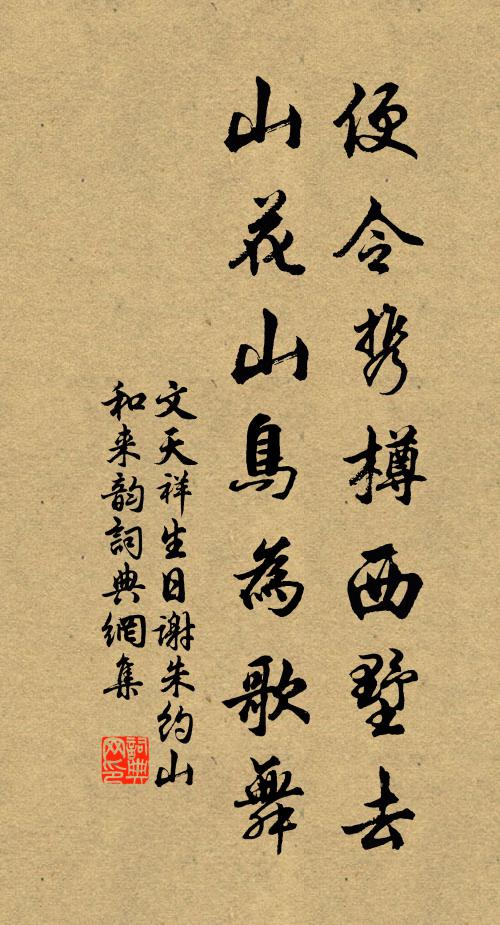 便令携樽西墅去
山花山鳥為歌舞
文天祥生日謝朱約山
和来韵詞典網集
詞典
网印